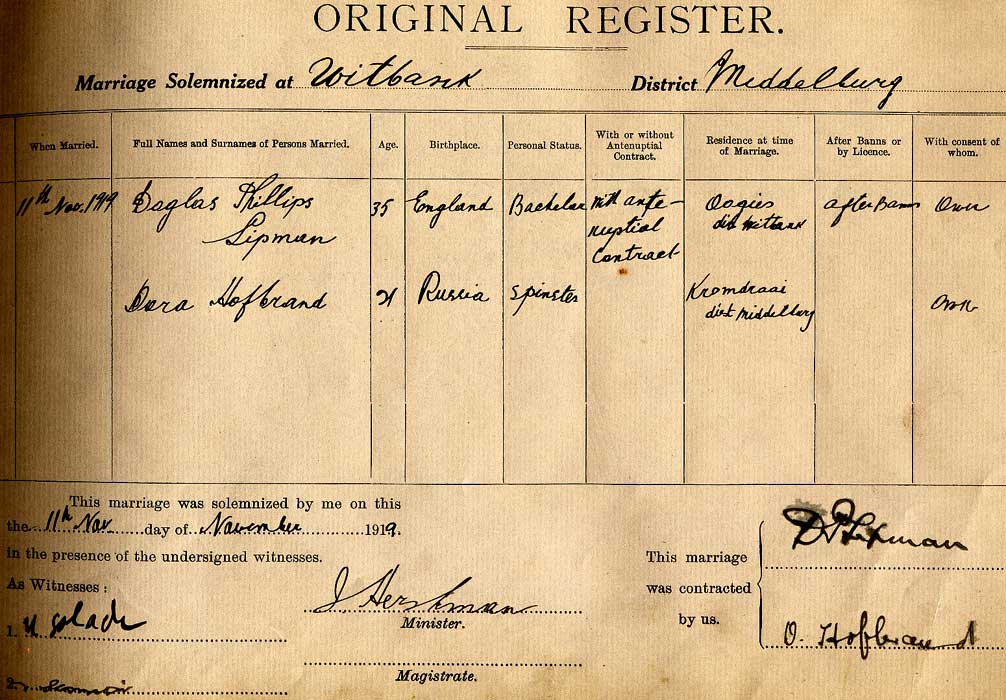 ORIGINAL REGISTER.
Marriage Solemnized at Witbank District Middelburg
When Married. Full Names and Surnames of Persons Married. Age. Birthplace. Personal Status. With or without Antenuptial Contract. Residence at time of Marriage. After Banns or by Licence. With consent of whom.
11th Nov. 1919 Daglas Phillips 35 England Bachelor with ante- Oogies after Banns Own
Lipman nuptial dist Witbank
Contract
Dora Hofbrand 21 Russia Spinster Kromdraai Own
dist Middelburg
This marriage was solemnized by me on this
the 11th Nov day of November 1919.
in the presence of the undersigned witnesses.
As Witnesses :
J Hershman
Minister.
1.
Magistrate.
2.
This marriage was contracted by us.
D P Lipman
D. Hofbrand